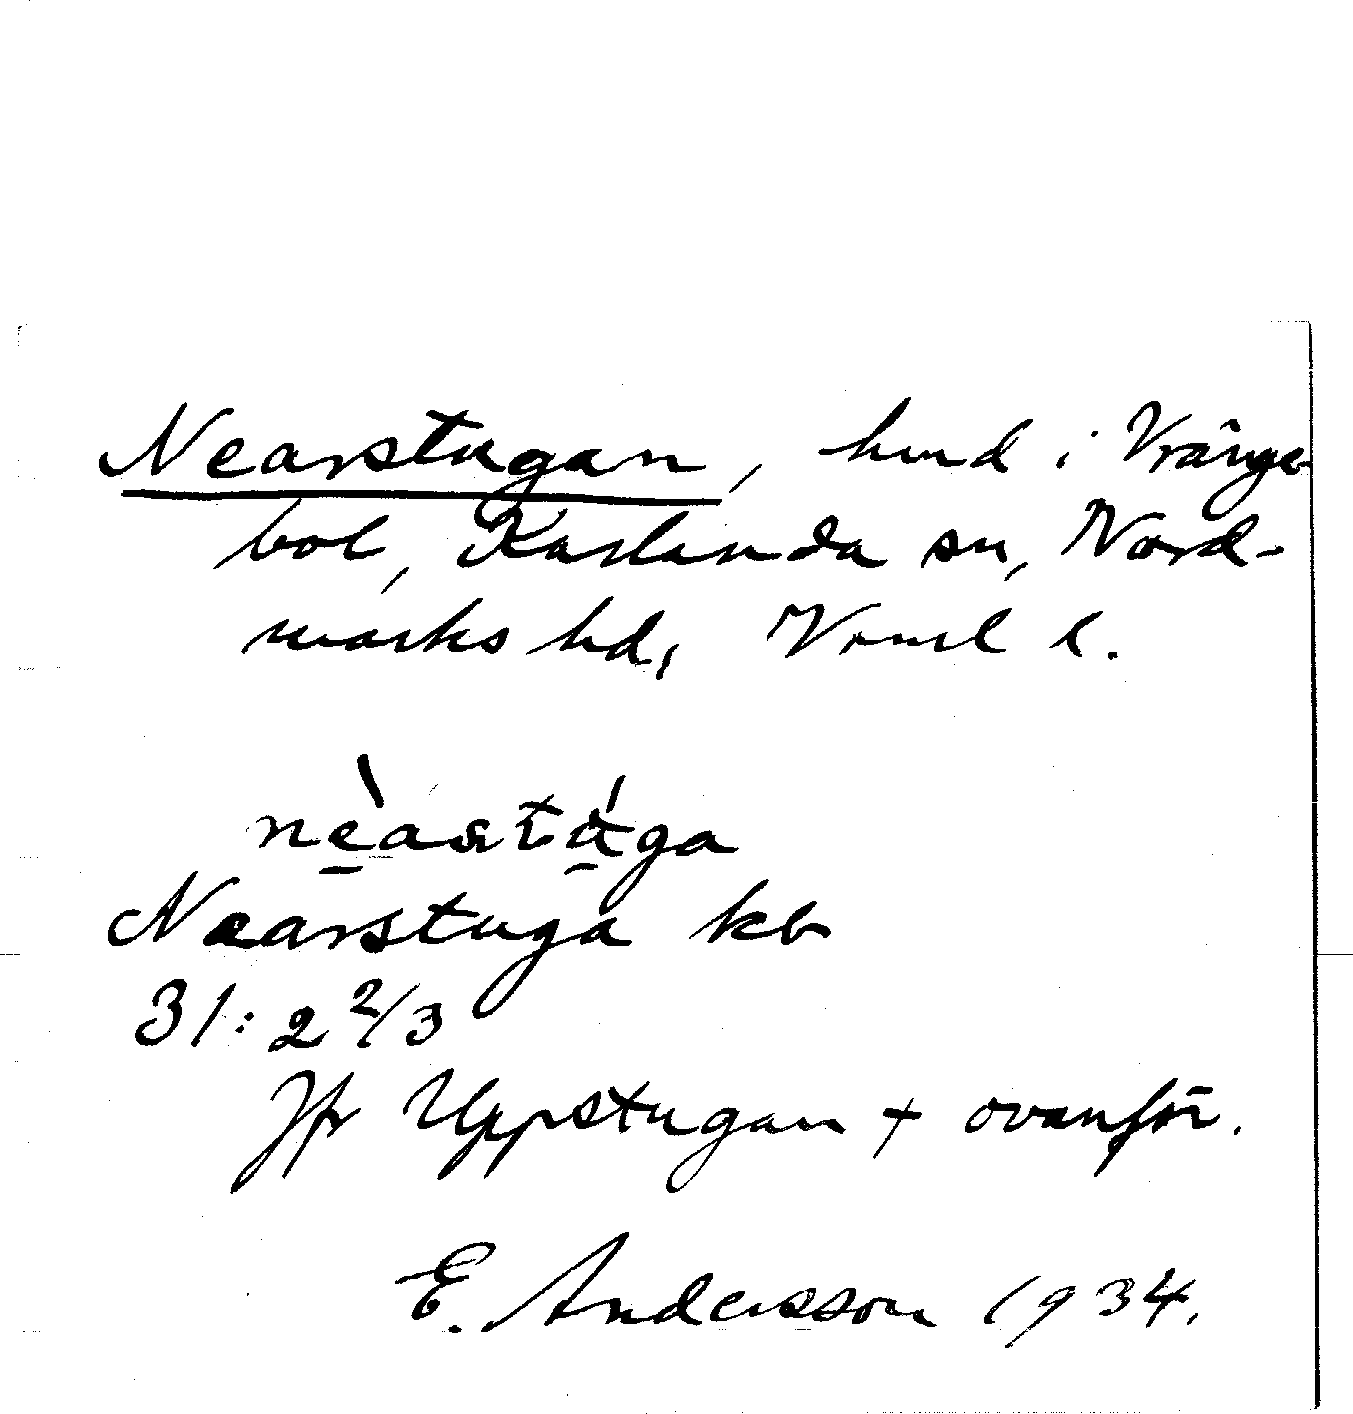 Nearstugan, hmd i Vränge-
bol, Karlanda sn, Nord-
marks hd, Vrml l.
nèastága
Nearstuga kb
31: 2 2/3
Jfr Uppstugan + ovanför.
E. Andersson 1934.